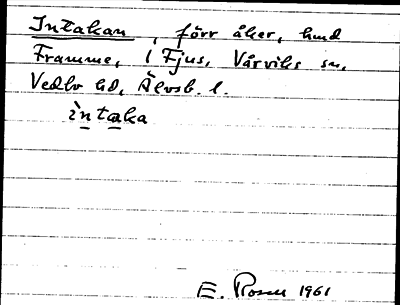 Intakan, förr åker, hmd
Framme, 1 Fjus, Vårviks sn,
Vedbo hd, Älvsb. l.
ìntaka
E. Rosen 1961